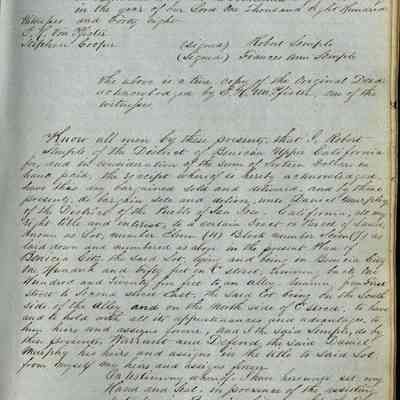 in the year of our Lord one thousand eight hundred
Witnesses and forty eight
Stephen Cooper (signed) Robert Semple
(signed) Frances Ann Semple
The above is a true copy of the Original Deed
acknowledged by one of the
witnesses
Know all men by these presents, that I, Robert
Semple of the District of Benicia Upper California
for, and in consideration of the sum of Sixteen Dollars in
hand paid, the receipt whereof is hereby acknowledged,
have this day bargained sold and delivered, and by these
presents, do bargain sell and deliver, unto Daniel Murphy
of the District of the Pueblo of San Jose California, all my
right title and interest, in a certain Lot or Parcel of Land,
known as Lot number Eleven (11) Block number as
laid down and numbered as above in the present Plan of
Benicia City the said Lot, lying and being in Benicia City
One Hundred and fifty feet on C street, running back One
Hundred and Twenty five feet to an alley, from First
street to Second street East, the said Lot being on the South
side of the Alley and on the North side of C Street, to have
and to hold with all its appurtenances and advantages, to
him heirs and assigns forever, And I the said Semple, do by
these presents, Warrant and Defend, the said Daniel
Murphy his heirs and assigns in the title to said Lot
from myself my heirs and assigns forever
In testimony whereof, I have hereunto set my
Hand and Seal, in presence of the